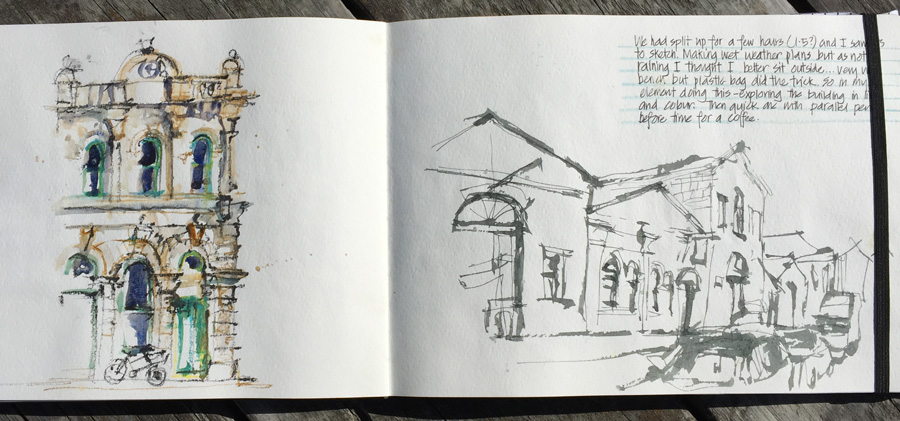 We had split up for a few hours (1.5?) and I
to sketch. Making wet weather plans but as not
raining I thought I better sit outside... very
bench, but plastic bag did the trick. So in my
element doing this - exploring the building in
and colour. Then quick one with parallel pen
before time for a coffee.